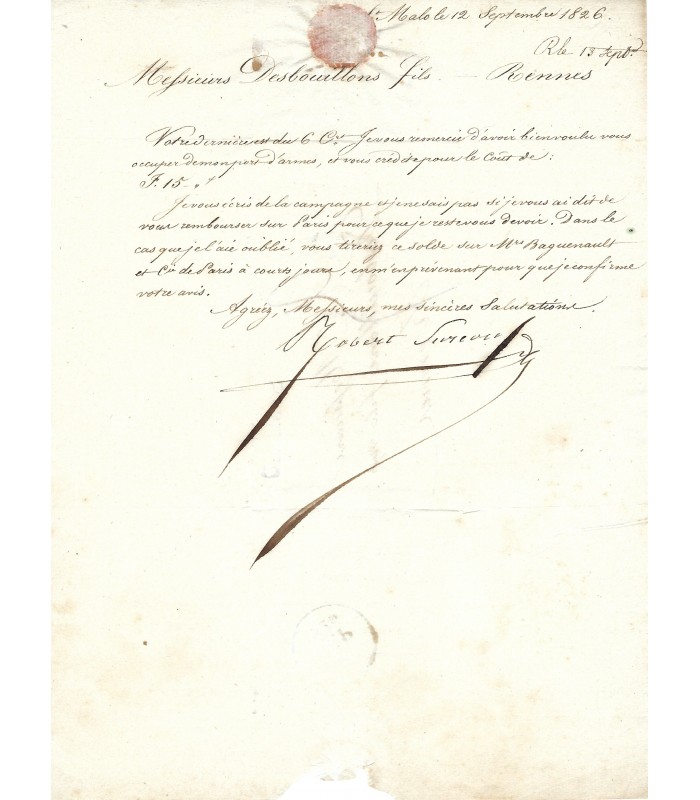 St Malo le 12 Septembre 1826.
R le 13 Septbre
Messieurs Desbouillons fils. — Rennes
Votre dernière est du 6 Cnt. Je vous remercie d'avoir bien voulu vous
occuper de mon port d'armes, et vous crédite pour le Coût de:
F. 15
Je vous écris de la campagne et je ne sais pas si je vous ai dit de
vous rembourser sur Paris pour ce que je reste vous devoir. Dans le
cas que je l'aie oublié, vous tireriez ce solde sur Mrs Baguenault
et Cie de Paris à courts jours, en m'en prévenant pour que je confirme
votre avis.
Agréez, Messieurs, mes sincères Salutations.
Robert Surcouf